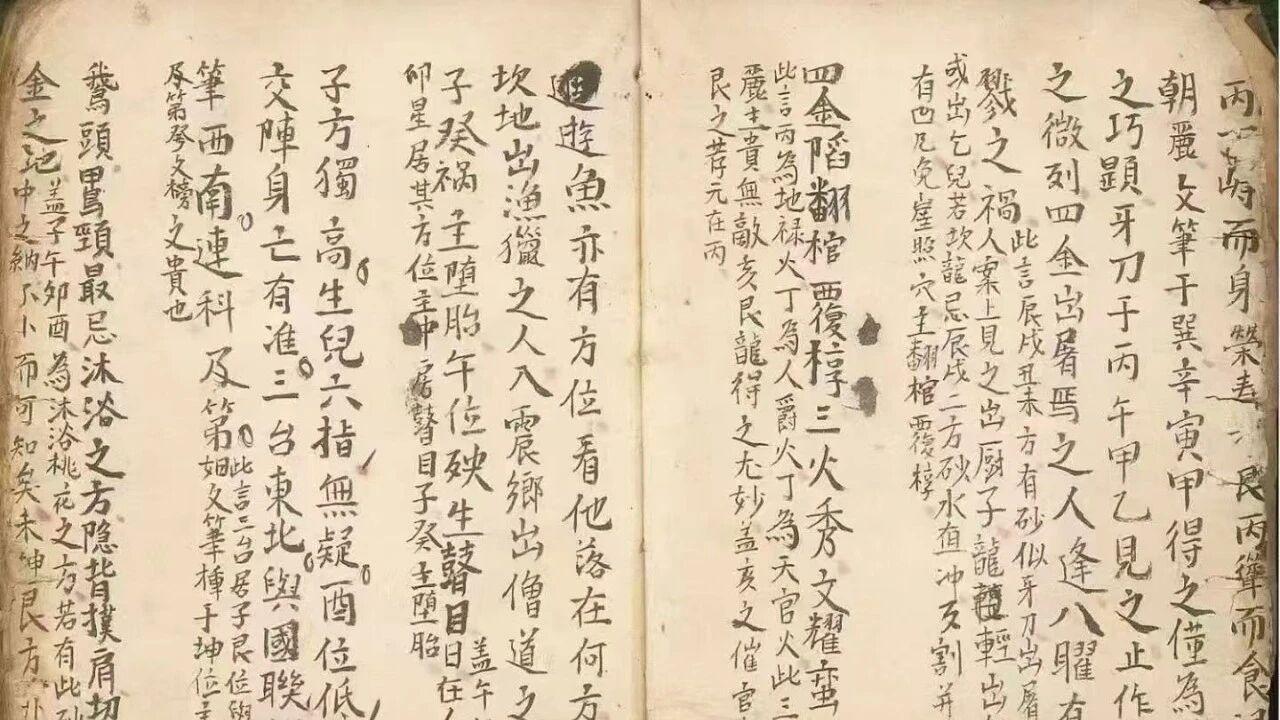 丙峙而身榮壽艮丙聳而食
朝麗文筆于巽辛寅甲得之僅為
之巧顕牙刀于丙午甲乙見之止作
之微列四金出屠焉之人逢八曜有
戮之禍人案上見之出厨子龍輕出
此言辰戌丑未方有砂似牙刀出屠
或出乞兒若坎龍忌辰戌二方砂水直冲刄割并
有凹凡免崖照穴主翻棺覆椁
四金陷翻棺覆椁三火秀文耀蛮
此言丙為地禄火丁為人爵火丁為天官火此三
麗主貴無敵亥艮龍得之尤妙盖亥之催官
艮之荐元在丙
遊魚亦有方位看他落在何方
坎地出漁獵之人入震鄉出僧道之
子癸禍主堕胎午位殃生瞽目
盖午
日在
卯星居其方位主中房瞽目子癸主堕胎
子方獨高生兒六指無疑酉位低
交陣身亡有准三台東北與國聯
筆西南連科及第
此言三台居子艮位與
如文筆揷于坤位主
及第發文榜文貴也
鵞頭鴨頸最忌沐浴之方隐背撲肩切
金之地
盖子午卯酉為沐浴桃花之方若有此砂
中之納不卜而可知矣未坤艮方